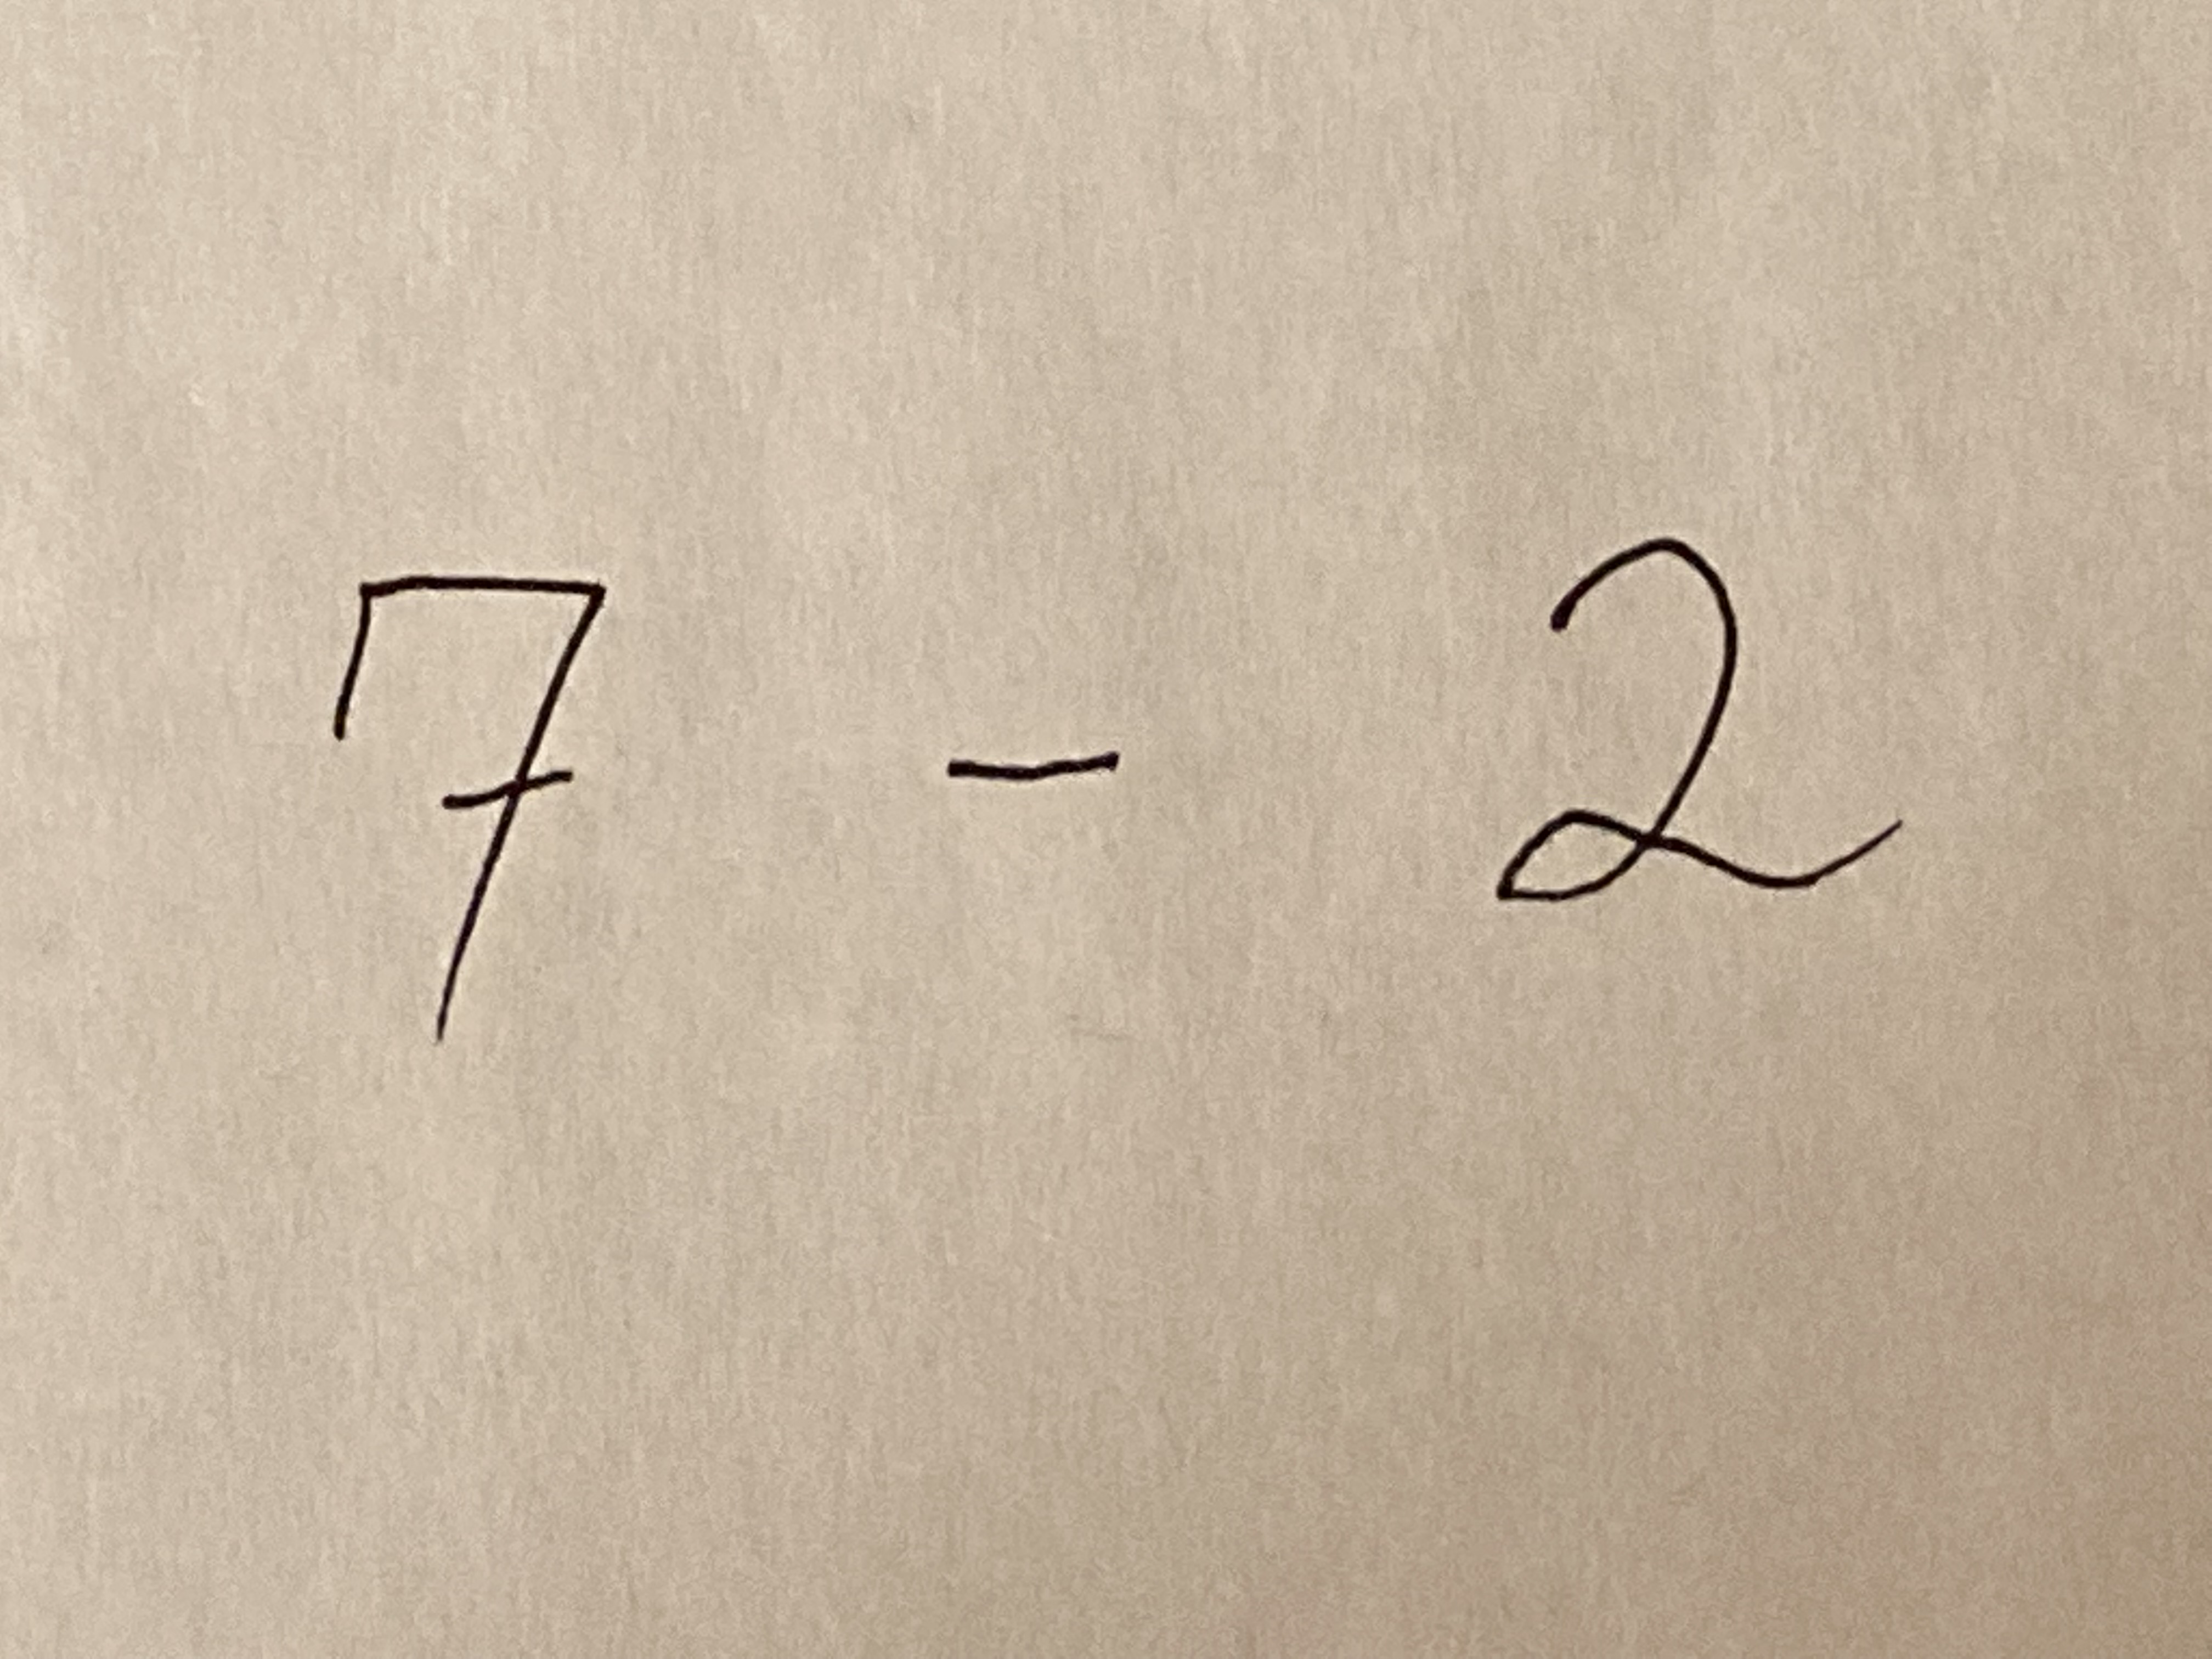 7 - 2